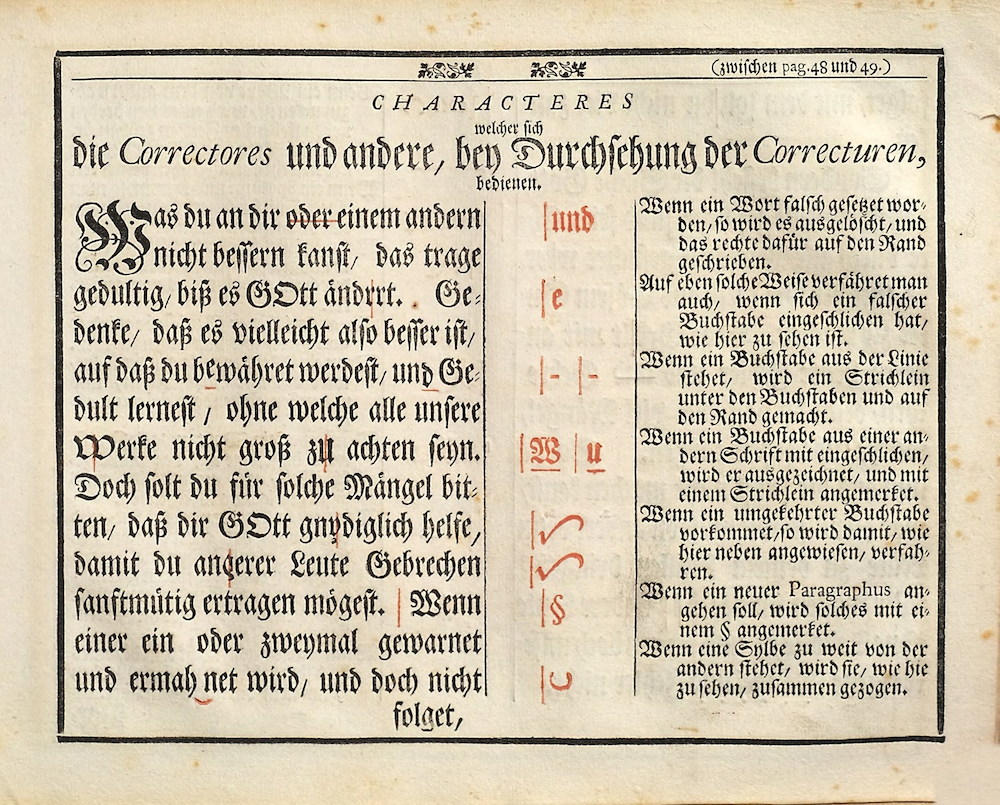 (zwischen pag. 48 und 49.)
CHARACTERES
welcher sich
die Correctores und andere, bey Durchsehung der Correcturen,
bedienen.
Was du an dir oder einem andern
nicht bessern kanst/ das trage
gedultig, biß es GOtt ändrrt. Ge-
denke/ daß es vielleicht also besser ist/
auf daß du bewähret werdest/ und Ge-
dult lernest / ohne welche alle unsere
Werke nicht groß zu achten seyn.
Doch solt du für solche Mängel bit-
ten/ daß dir GOtt gnydiglich helfe,
damit du anderer Leute Gebrechen
sanftmütig ertragen mögest. | Wenn
einer ein oder zweymal gewarnet
und ermah net wird/ und doch nicht
folget,
|und
|e
|- |-
|W |u
|§
Wenn ein Wort falsch gesetzet wor-
den/ so wird es ausgelöscht/ und
das rechte dafür auf den Rand
geschrieben.
Auf eben solche Weise verfähret man
auch/ wenn sich ein falscher
Buchstabe eingeschlichen hat/
wie hier zu sehen ist.
Wenn ein Buchstabe aus der Linie
stehet/ wird ein Strichlein
unter den Buchstaben und auf
den Rand gemacht.
Wenn ein Buchstabe aus einer an-
dern Schrift mit eingeschlichen/
wird er ausgezeichnet, und mit
einem Strichlein angemerket.
Wenn ein umgekehrter Buchstabe
vorkommet/ so wird damit, wie
hier neben angewiesen/ verfah-
ren.
Wenn ein neuer Paragraphus an-
gehen soll/ wird solches mit ei-
nem § angemerket.
Wenn eine Sylbe zu weit von der
andern stehet/ wird sie/ wie hie
zu sehen/ zusammen gezogen.